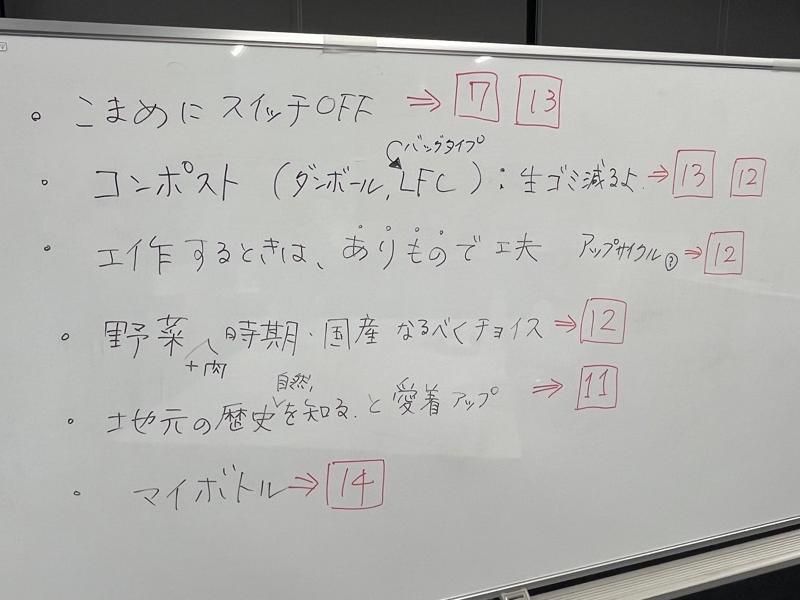 ・こまめに スイッチOFF ⇒ 7 13
バッグタイプ
・コンポスト (ダンボール, LFC) : 生ゴミ減るよ. ⇒ 13 12
・工作するときは、ありもので工夫 アップサイクル? ⇒ 12
・野菜 時期・国産 なるべくチョイス ⇒ 12
+肉
自然,
・土地元の歴史を知る. と 愛着アップ ⇒ 11
・マイボトル ⇒ 14